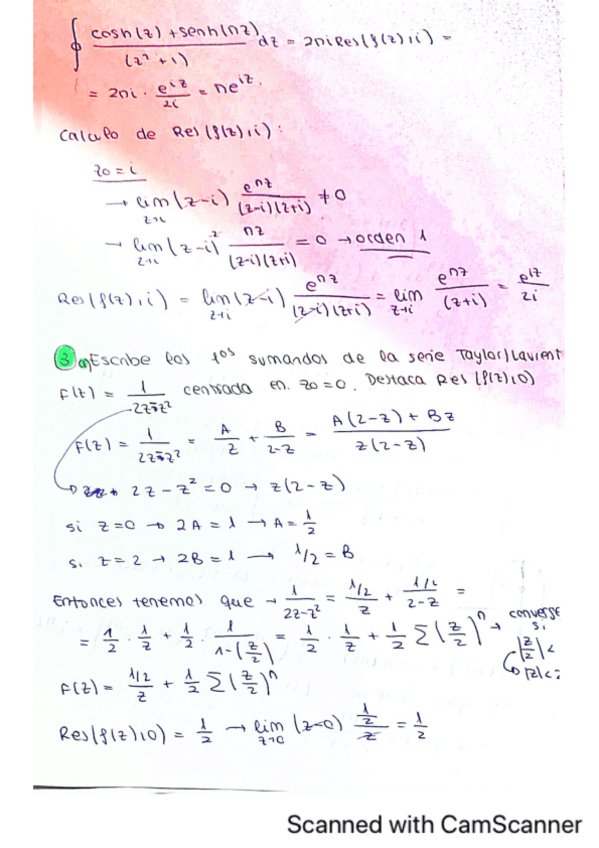 ∮ (cosh(z) + senh(πz))/(z²+1) dz = 2πi Res(f(z), i) =
= 2πi · e^{iz}/2i = πe^{iz}.
Calculo de Res(f(z), i):
z0 = i
→ lim_{z→i} (z-i) e^{πz}/((z-i)(z+i)) ≠ 0
→ lim_{z→i} (z-i)² πz/((z-i)(z+i)) = 0 → orden 1
Res(f(z), i) = lim_{z→i} (z-i) e^{πz}/((z-i)(z+i)) = lim_{z→i} e^{πz}/(z+i) = e^{iz}/2i
3 a) Escribe los 1os sumandos de la serie Taylor/Laurent
F(z) = 1/(2z-z²) centrada en z0=0. Destaca Res(f(z),0)
F(z) = 1/(2z-z²) = A/z + B/(2-z) = (A(2-z) + Bz)/(z(2-z))
→ 2z - z² = 0 → z(2-z)
si z=0 → 2A = 1 → A = 1/2
si z=2 → 2B = 1 → 1/2 = B
Entonces tenemos que → 1/(2z-z²) = (1/2)/z + (1/2)/(2-z) =
= 1/2 · 1/z + 1/2 · 1/(1-(z/2)) = 1/2 · 1/z + 1/2 Σ(z/2)^n → converge
si
|z/2| <
↳ |z| <
F(z) = (1/2)/z + 1/2 Σ(z/2)^n
Res(f(z),0) = 1/2 → lim_{z→0} (z-0) (1/2)/z = 1/2
Scanned with CamScanner